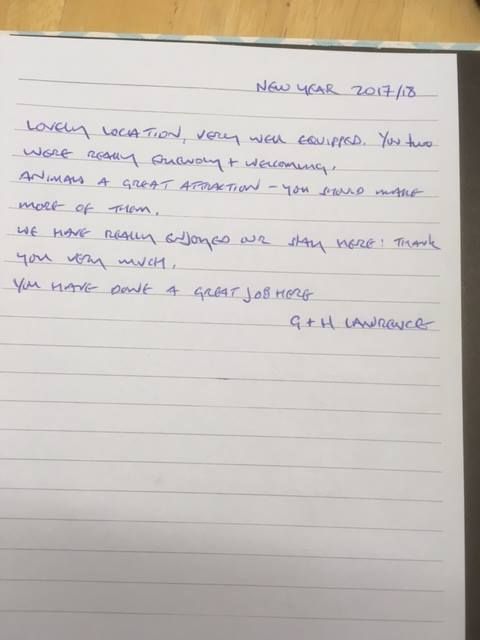 NEW YEAR 2017/18
LOVELY LOCATION, VERY WELL EQUIPPED. YOU two
WERE REALLY FRIENDLY + WELCOMING.
ANIMALS A GREAT ATTRACTION - YOU SHOULD MAKE
MORE OF THEM.
WE HAVE REALLY ENJOYED OUR STAY HERE! THANK
YOU VERY MUCH.
YOU HAVE DONE A GREAT JOB HERE
G + H LAWRENCE